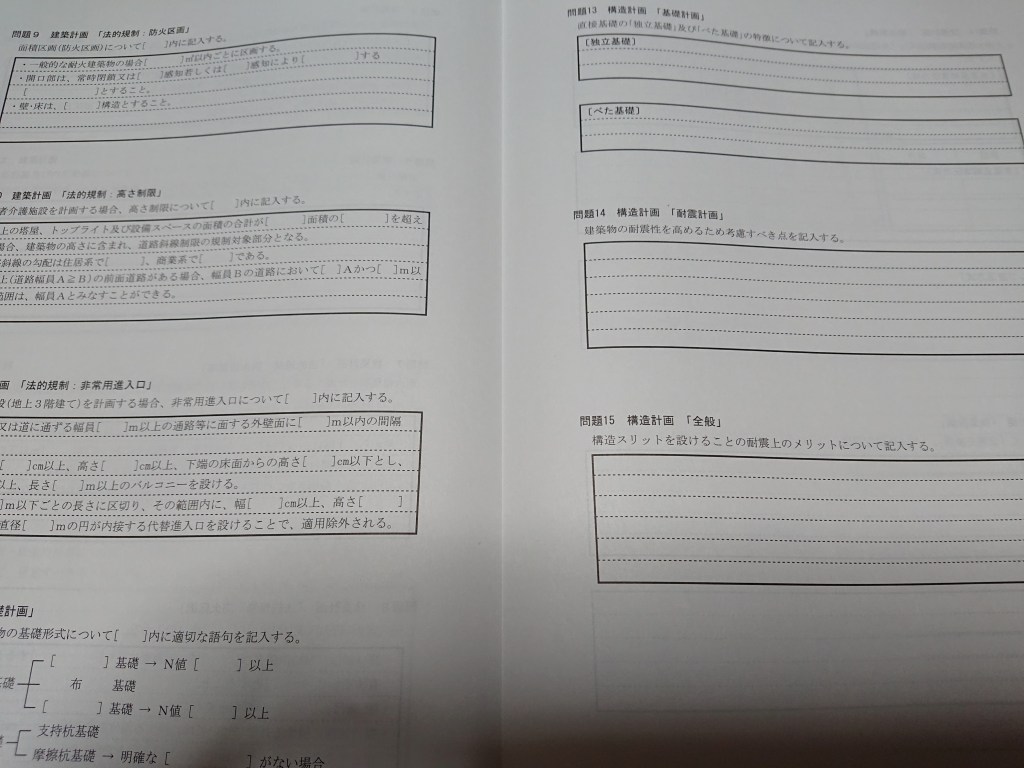 問題９　建築計画　「法的規制：防火区画」
面積区画(防火区画)について[　　]内に記入する。
・一般的な耐火建築物の場合[　　　]㎡以内ごとに区画する。
・開口部は、常時閉鎖又は[　　]感知若しくは[　　]感知により[　　　　]する
[　　　　　　]とすること。
・壁・床は、[　　　]構造とすること。
建築計画　「法的規制：高さ制限」
者介護施設を計画する場合、高さ制限について[　　]内に記入する。
上の塔屋、トップライト及び設備スペースの面積の合計が[　　　]面積の[　　　]を超え
場合、建築物の高さに含まれ、道路斜線制限の規制対象部分となる。
斜線の勾配は住居系で[　　　]、商業系で[　　　]である。
上(道路幅員Ａ≧Ｂ)の前面道路がある場合、幅員Ｂの道路において[　]Ａかつ[　]ｍ以
範囲は、幅員Ａとみなすことができる。
画　「法的規制：非常用進入口」
設(地上３階建て)を計画する場合、非常用進入口について[　　]内に記入する。
又は道に通ずる幅員[　　]ｍ以上の通路等に面する外壁面に[　　]ｍ以内の間隔
[　　]cm以上、高さ[　　]cm以上、下端の床面からの高さ[　　]cm以下とし、
以上、長さ[　　]ｍ以上のバルコニーを設ける。
]ｍ以下ごとの長さに区切り、その範囲内に、幅[　　]cm以上、高さ[　　]
直径[　　]ｍの円が内接する代替進入口を設けることで、適用除外される。
礎計画」
物の基礎形式について[　　]内に適切な語句を記入する。
[　　　　]基礎 → Ｎ値 [　　　] 以上
基礎　布　　基礎
[　　　　]基礎 → Ｎ値 [　　　] 以上
支持杭基礎
摩擦杭基礎 → 明確な [　　　　　　] がない場合
問題13　構造計画　「基礎計画」
直接基礎の「独立基礎」及び「べた基礎」の特徴について記入する。
[独立基礎]
[べた基礎]
問題14　構造計画　「耐震計画」
建築物の耐震性を高めるため考慮すべき点を記入する。
問題15　構造計画　「全般」
構造スリットを設けることの耐震上のメリットについて記入する。